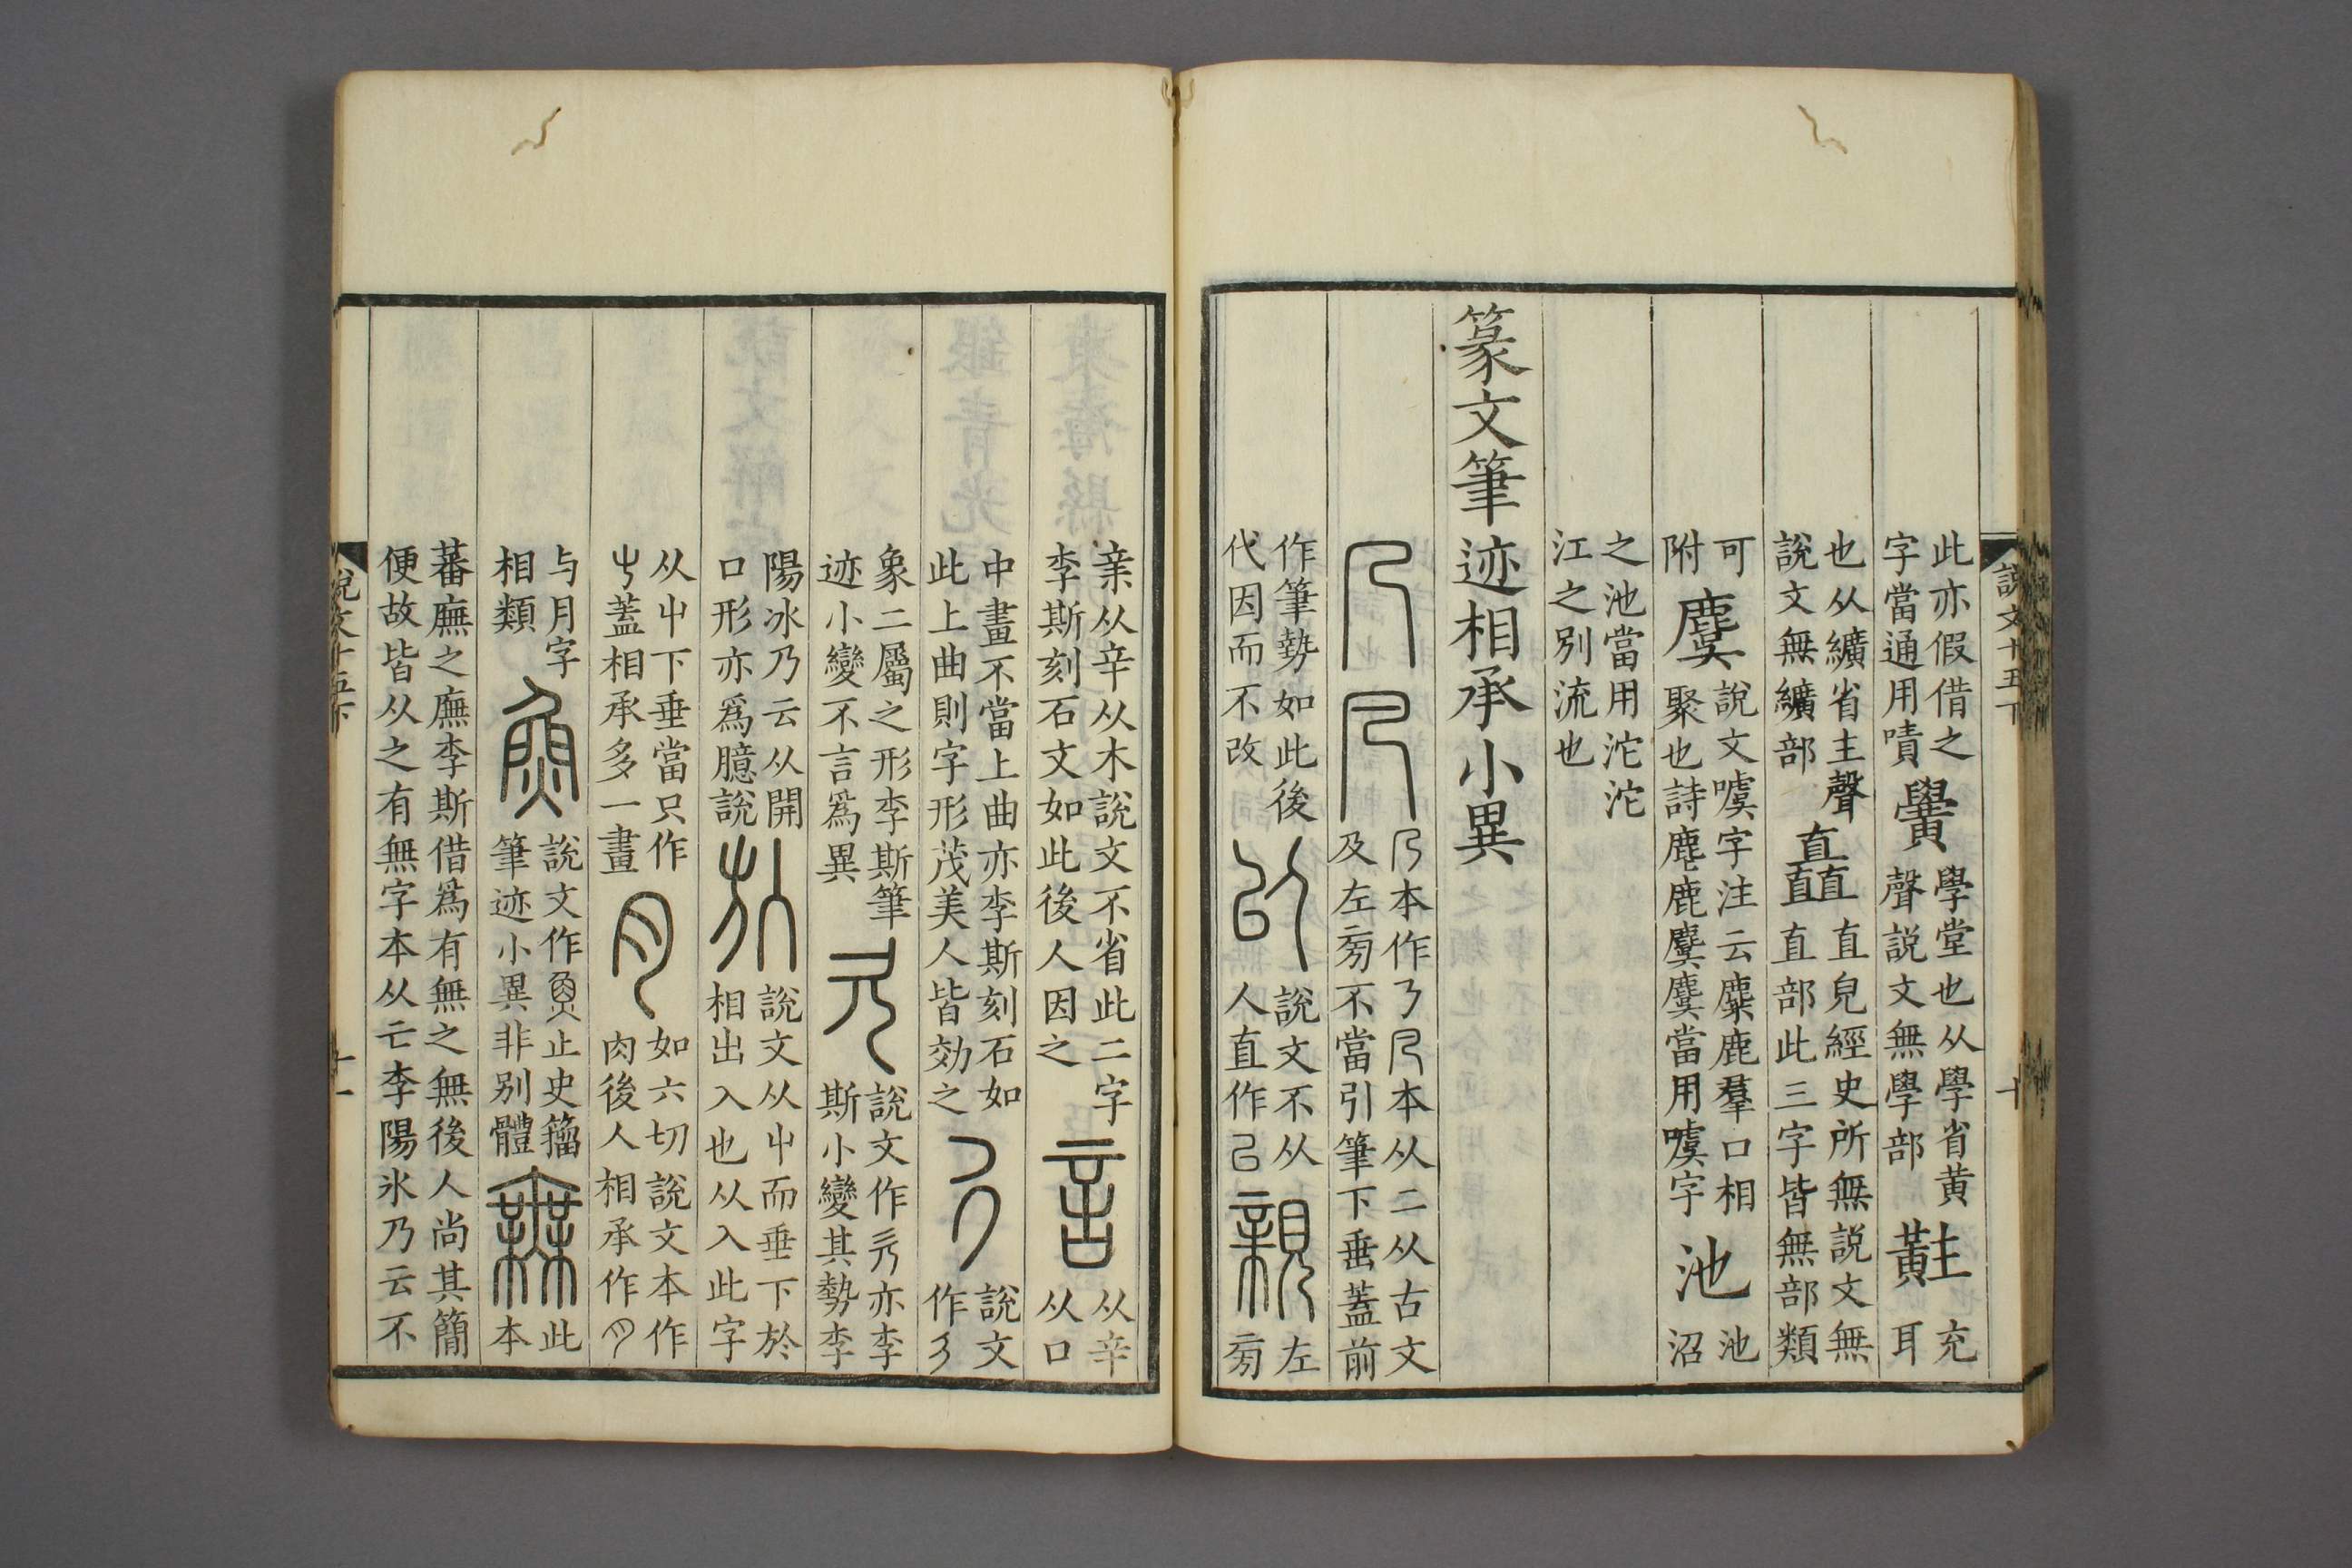 說文十五下
十
此亦假借之
字當通用嘖
黌
學堂也从學省黄
聲説文無學部
黈
充
耳
也从纊省主聲
說文無纊部
矗
直皃經史所無説文無
直部此三字皆無部類
可
附
麌
說文噳字注云麋鹿羣口相
聚也詩麀鹿麌麌當用噳字
池
池
沼
之池當用沱沱
江之別流也
篆文筆迹相承小異
本作 本从二从古文
及左㫄不當引筆下垂蓋前
作筆勢如此後
代因而不改
說文不从
人直作㠯
親
左
㫄
亲从辛从木說文不省此二字
李斯刻石文如此後人因之
言
从辛
从口
說文
作
中畫不當上曲亦李斯刻石如
此上曲則字形茂美人皆効之
象二屬之形李斯筆
迹小變不言爲異
說文作 亦李
斯小變其勢李
陽冰乃云从開
口形亦爲臆說
說文从屮而垂下於
相出入也从入此字
从屮下垂當只作
屮蓋相承多一畫
如六切說文本作
肉後人相承作
与月字
相類
魚
說文作 止史籀
筆迹小異非別體
無
此
本
蕃廡之廡李斯借爲有無之無後人尚其簡
便故皆从之有無字本从亡李陽冰乃云不
說文十五下
十一